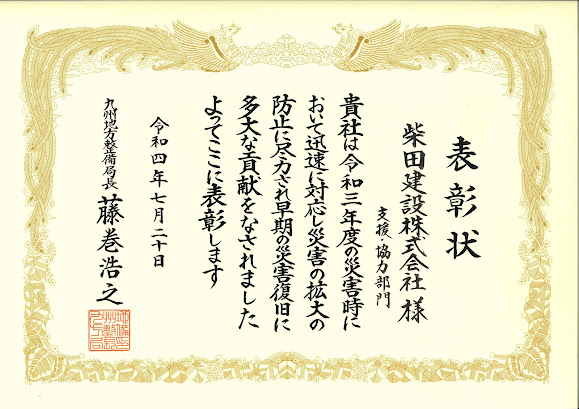 表彰状
柴田建設株式会社 様
支援・協力部門
貴社は令和三年度の災害時に
おいて迅速に対応し災害の拡大の
防止に尽力され早期の災害復旧に
多大な貢献をなされました
よってここに表彰します
令和四年七月二十日
九州地方整備局長 藤巻浩之